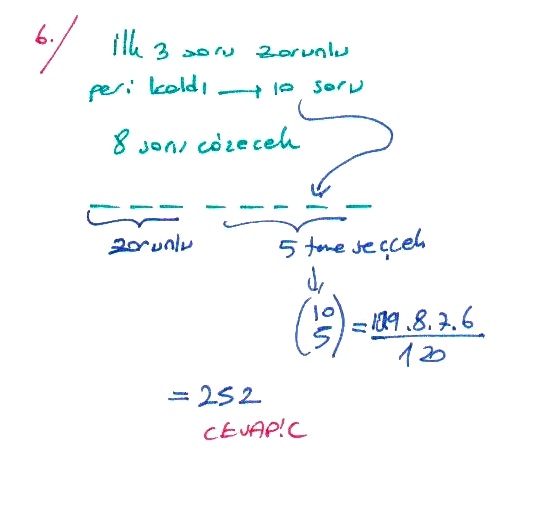 6./ ilk 3 soru zorunlu
geri kaldı → 10 soru
8 soru çözecek
zorunlu 5 tane seçcek
(10 5) = 10.9.8.7.6 / 120
= 252
CEVAP: C